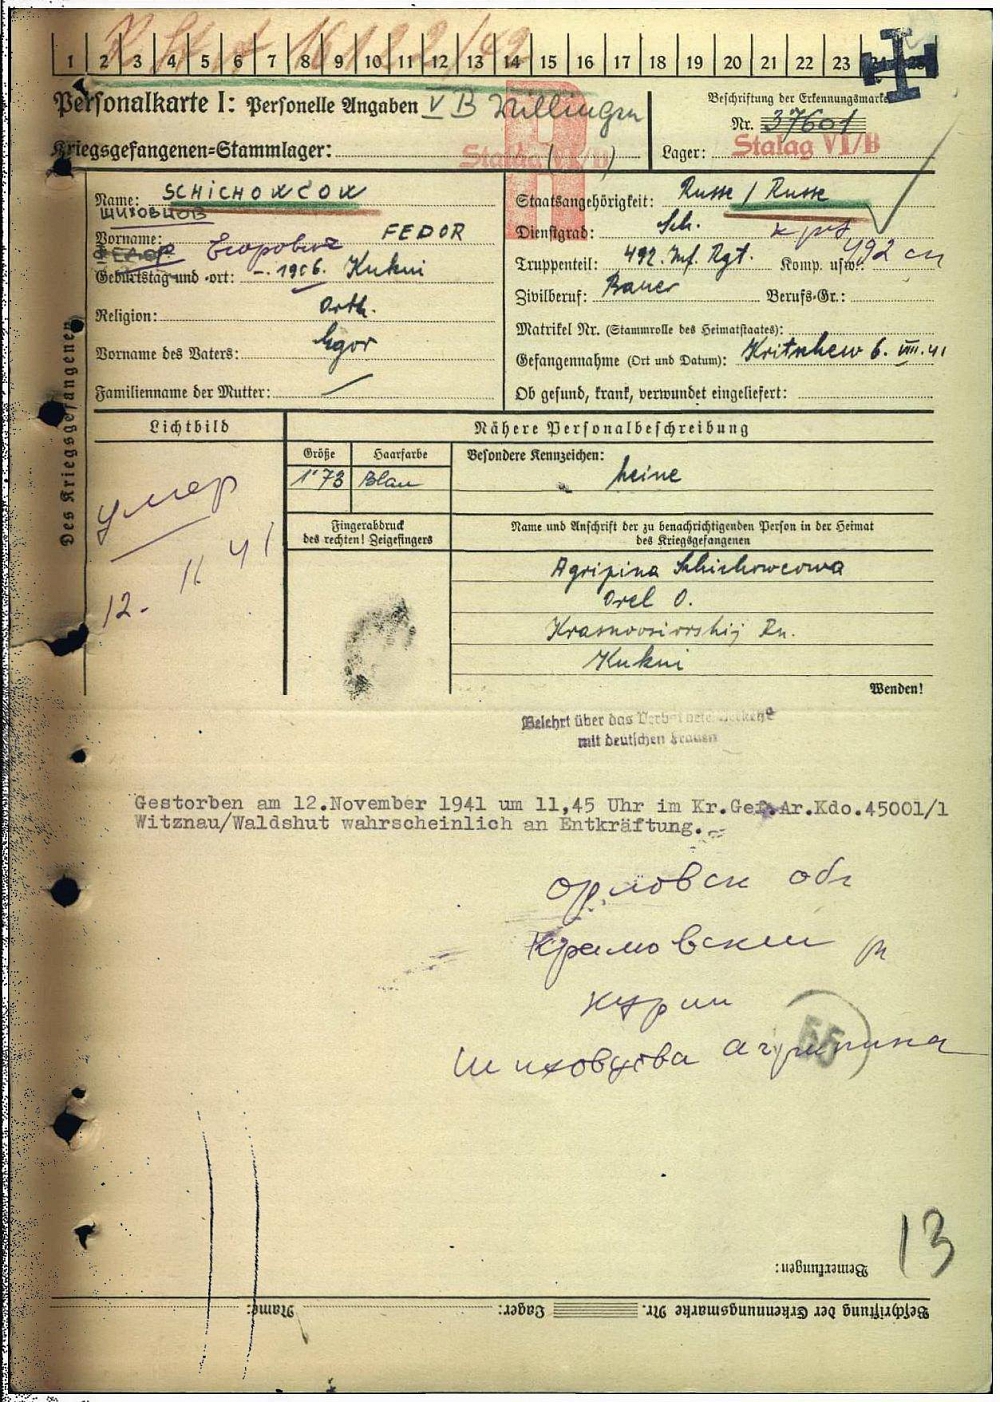 1 2 3 4 5 6 7 8 9 10 11 12 13 14 15 16 17 18 19 20 21 22 23
Personalkarte I: Personelle Angaben V B Villingen
Beschriftung der Erkennungsmarke
Nr. 37601
Kriegsgefangenen-Stammlager: Stalag (VI/B)
Lager: Stalag VI/B
Des Kriegsgefangenen
Name: SCHICHOWCOW
ШИХОВЦОВ
Vorname: FEDOR
ФЕДОР Егорович
Geburtstag und -ort: -. 1906. Kukui
Religion: Orth.
Vorname des Vaters: Egor
Familienname der Mutter: /
Staatsangehörigkeit: Russe / Russe
Dienstgrad: Sch. кр
Truppenteil: 492. Inf. Rgt. Komp. usw.: 492 сп
Zivilberuf: Bauer Berufs-Gr.:
Matrikel Nr. (Stammrolle des Heimatstaates):
Gefangennahme (Ort und Datum): Kritschew 6. VIII. 41
Ob gesund, krank, verwundet eingeliefert:
Lichtbild
умер
12. 11 41
Nähere Personalbeschreibung
Größe Haarfarbe Besondere Kennzeichen:
1'73 Blau keine
Fingerabdruck
des rechten! Zeigefingers
Name und Anschrift der zu benachrichtigenden Person in der Heimat
des Kriegsgefangenen
Agripina Schichowcowa
Orel O.
Rn.
Kukui
Wenden!
Belehrt über das
mit deutschen Frauen
Gestorben am 12.November 1941 um 11,45 Uhr im Kr.Gef.Ar.Kdo.45001/1
Witznau/Waldshut wahrscheinlich an Entkräftung.
Орловск обл
Крамовский рн
Шиховцова Агрипина
55
13
Bemerkungen:
Beschriftung der Erkennungsmarke Nr. Lager: Name: